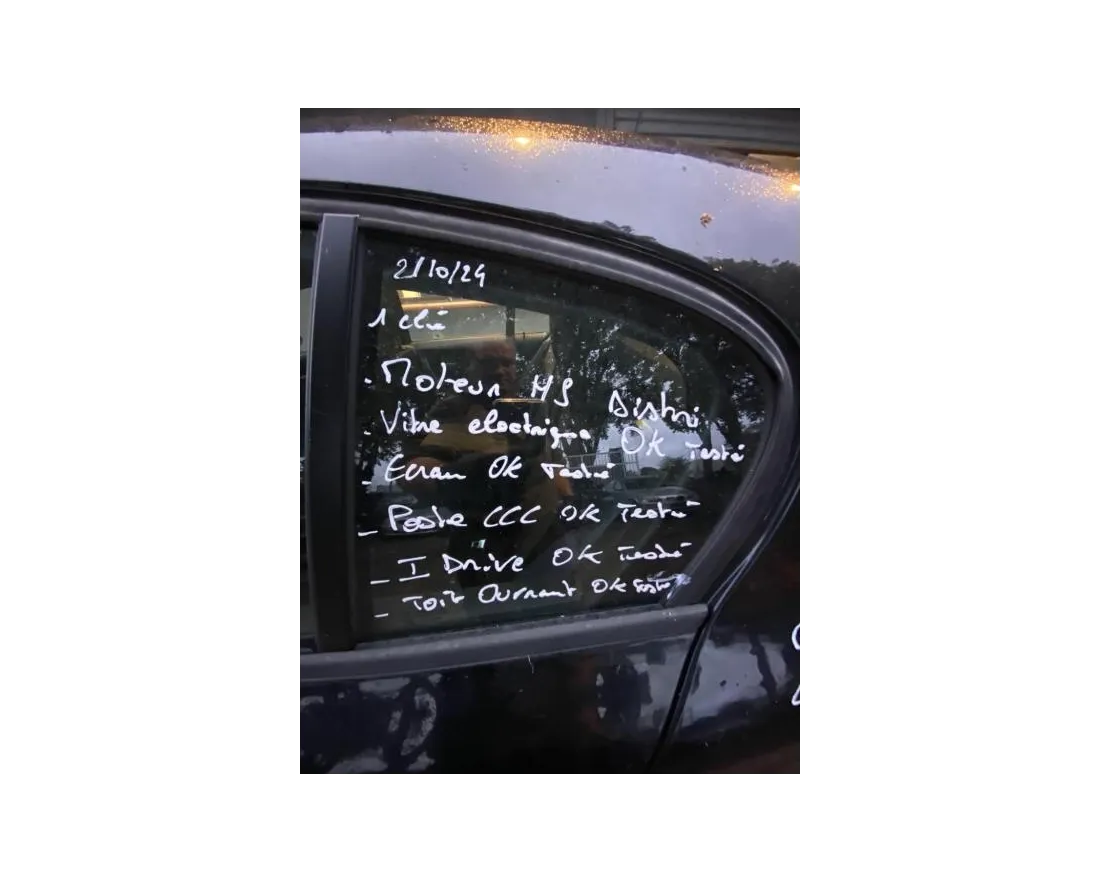 2/10/24
1 clé
- Moteur HS Distri
- Vitre electrique OK Testé
- Ecran OK Testé
- Poste CCC OK Testé
- I Drive OK Testé
- Toit Ouvrant OK Testé